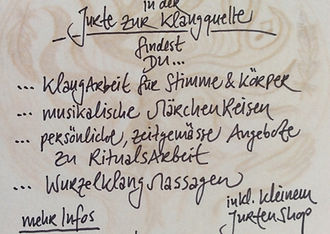 in der
Jurte zur Klangquelle
findest
Du...
... KlangArbeit für Stimme & Körper
... musikalische MärchenReisen
... persönliche, zeitgemässe Angebote
zu RitualsArbeit
... WurzelKlangMassagen
inkl. Kleinem
JurtenShop
mehr Infos